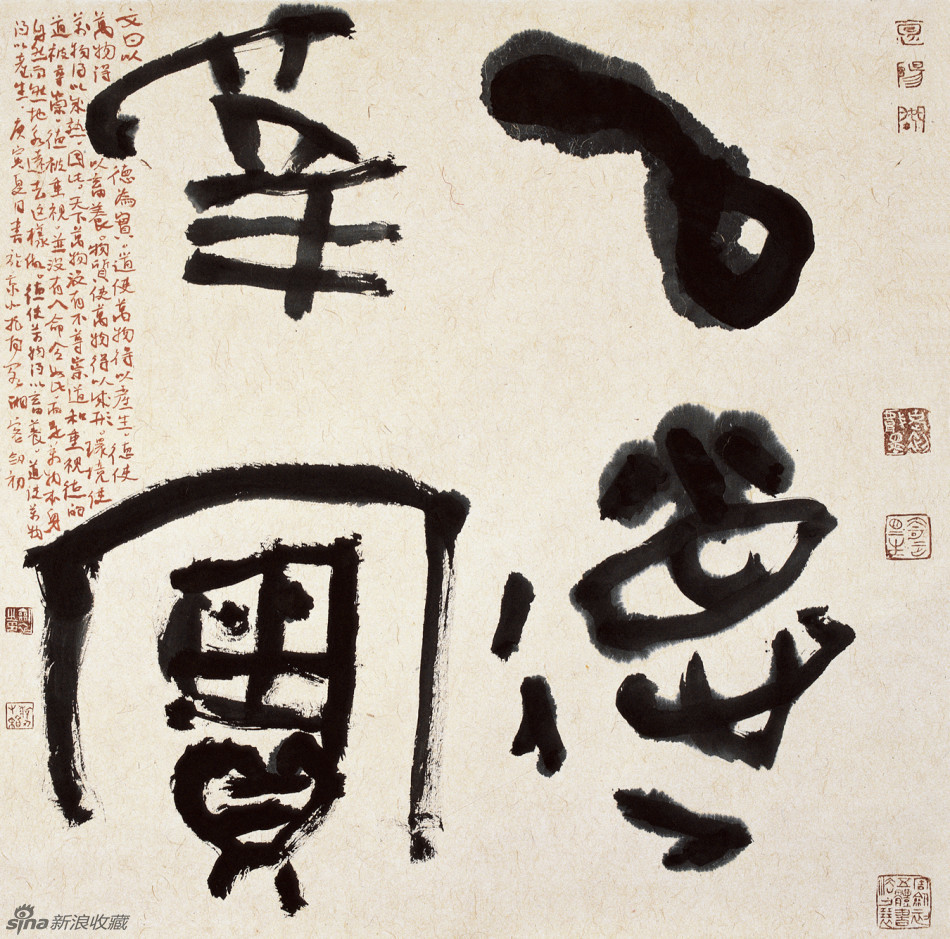 以德
為寶
文曰以德為寶。道使萬物得以產生。德使
萬物得以畜養。物質使萬物得以成形。環境使
萬物得以成熟。因此天下萬物沒有不尊崇道和重視德的
道被尊崇。德被重視。並沒有人命令如此而是萬物本身
自然而然地永遠去這樣做。德使萬物得以畜養。道使萬物
得以產生。庚寅夏日書於京北 湘客劍初
sina新浪收藏